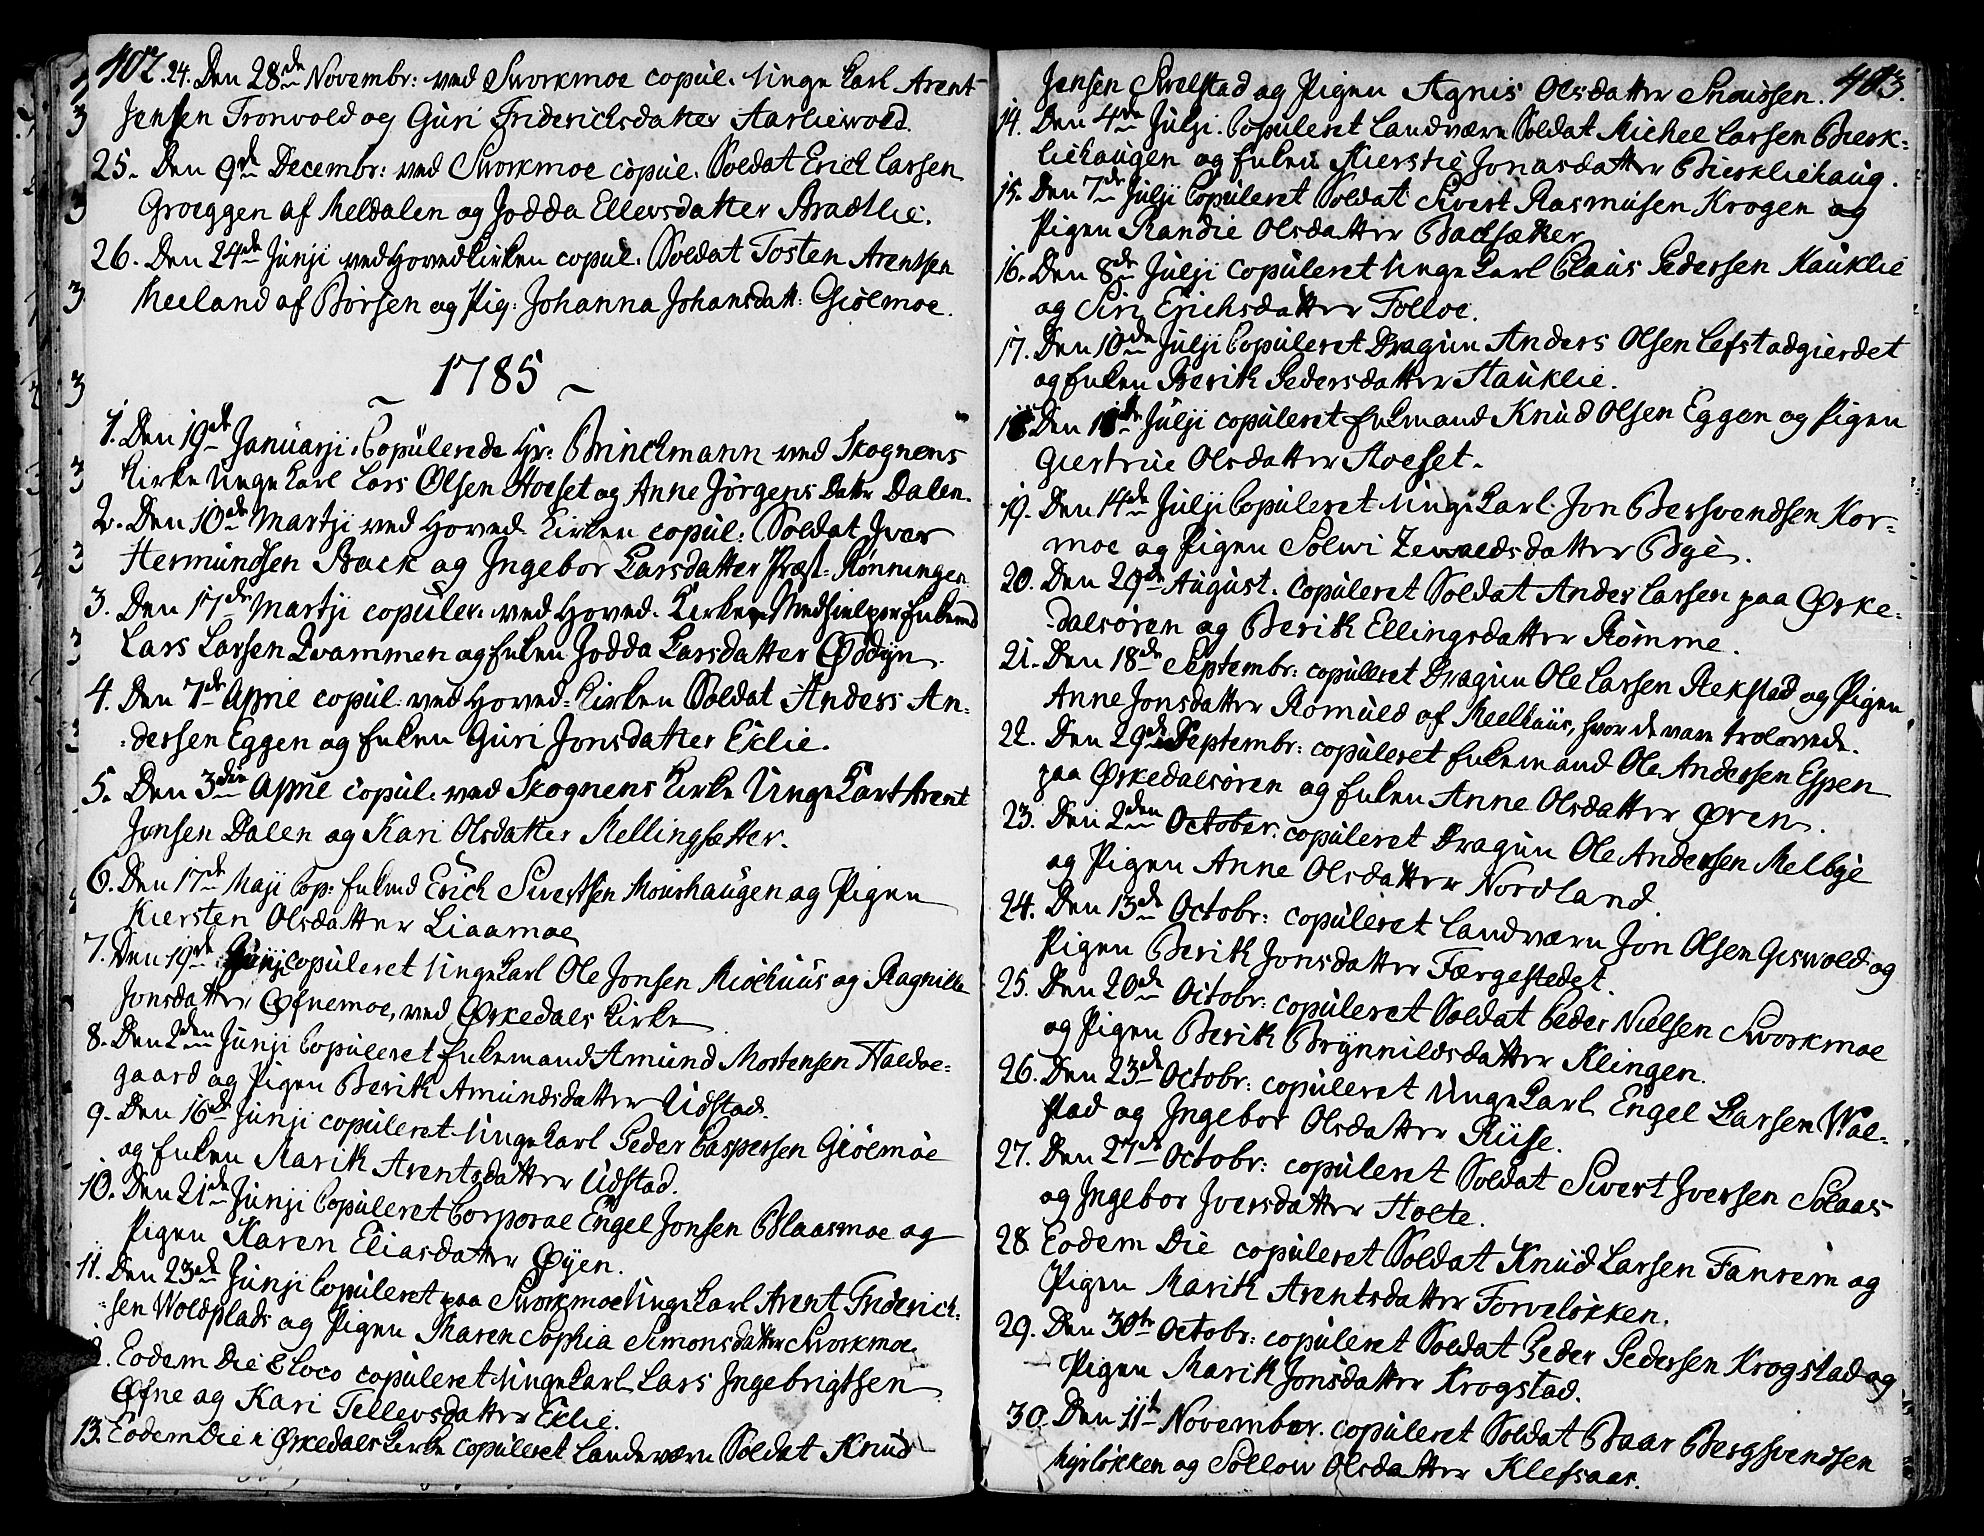 402. 24. Den 28de Novembr: ved Svorkmoe copul. Unge Karl Arent
Jensen Tronvold og Guri Friderichsdatter Aarlievold.
25. Den 9de Decembr: ved Svorkmoe copul. Soldat Erich Larsen
Groeggen af Meldalen og Jodda Ellevsdatter Bradtlie.
26. Den 24de Junji ved Hovedkirken copul. Soldat Tosten Arentsen
Meeland af Børsen og Pig: Johanna Johansdatt: Giølmoe.
~ 1785 ~
1. Den 19de Januarji. Copulerede Hr: Brinchmann ved Skognens
Kirke Unge Karl Lars Olsen Hoeset og Anne Jørgens Datter Dalen.
2. Den 10de Martji ved Hoved Kirken copul: Soldat Iver
Hermundsen Back og Ingebor Larsdatter Præst-Rønningen
3. Den 17de Martji copuler. ved Hoved-Kirken Medhielper Enkemd
Lars Larsen Qvammen og Enken Jodda Larsdatter Øddyn.
4. Den 7de April copul: ved Hoved-Kirken Soldat Anders An-
dersen Eggen og Enken Guri Jonsdatter Eklie.
5. Den 3den April copul: ved Skognens Kirke Unge Karl Arent
Jonsen Dalen og Kari Olsdatter Mellingsætter.
6. Den 17de Maji Cop: Enkmd Erich Sivertsen Moushaugen og Pigen
Kiersten Olsdatter Liaamoe
7. Den 19de Junji copuleret Unge Karl Ole Jonsen Miøehuus og Ragnille
Jonsdatter Øfnemoe, ved Ørkedals Kirke
8. Den 2den Junji Copuleret Enkemand Amund Mortensen Haldoe-
gaard og Pigen Berith Amundsdatter Udstad.
9. Den 16de Junji copuleret Unge Karl Peder Caspersen Giølmoe
og Enken Marith Arentsdatter Udstad.
10. Den 21de Junji Copuleret Corporal Engel Jonsen Blaasmoe og
Pigen Karen Eliasdatter Øyen.
11. Den 23de Junji Copuleret paa Svorkmoe Unge Karl Arent Friderich-
sen Woldplads og Pigen Maren Sophia Simonsdatter Svorkmoe
12. Eodem Die & Loco copuleret Unge Karl Lars Ingebrigtsen
Øfne og Kari Tellevsdatter Eklie.
13. Eodem Die i Ørkedals Kirke copuleret Landeværn Soldat Knud
Jensen Svelstad og Pigen Agnis Olsdatter Snoussen. 403.
14. Den 4de Julji. Copuleret Landværn Soldat Michel Larsen Bierk-
liehaugen og Enken Kierstie Jonasdatter Bierkliehaug.
15. Den 7de Julji Copuleret Soldat Sivert Rasmusen Krogen og
Pigen Randie Olsdatter Backsætter
16. Den 8de Julji copuleret Unge Karl Claus Pedersen Hauklie
og Siri Erichsdatter Folloe.
17. Den 10de Julji Copuleret Dragun Anders Olsen Lefstadgierdet
og Enken Berith Pedersdatter Hauklie.
18. Den 11de Julji copuleret Enkemand Knud Olsen Eggen og Pigen
Giertrue Olsdatter Hoeset.
19. Den 14de Julji Copuleret Unge Karl Jon Bersvendsen Kor-
moe og Pigen Solvi Zewaldsdatter Bye.
20. Den 29de August. copuleret Soldat Anders Larsen paa Ørke-
dalsøren og Berith Ellingsdatter Rømme.
21. Den 18de Septembr: copulleret Dragun Ole Larsen Rekstad og Pigen
Anne Jonsdatter Romuld af Meelhuus, hvor de vare trolovede.
22. Den 29de Septembr: copuleret Enkemand Ole Andersen Espen
paa Ørkedalsøren og Enken Anne Olsdatter Øren.
23. Den 2den October. copuleret Dragun Ole Andersen Melbye
og Pigen Anne Olsdatter Nordland.
24. Den 13de Octobr: copuleret Landværn Jon Olsen Gisvold og
Pigen Berith Jonsdatter Færgestedet.
25. Den 20de Octobr: copuleret Soldat Peder Nielsen Svorkmoe
og Pigen Berith Brynnildsdatter Klingen.
26. Den 23de Octobr: copuleret Unge Karl Engel Larsen Wol-
stad og Ingebor Olsdatter Riise.
27. Den 27de Octobr: copuleret Soldat Sivert Iversen Solaas
og Ingebor Iversdatter Holte.
28. Eodem Die copuleret Soldat Knud Larsen Fanrem og
Pigen Marith Arentsdatter Forveløkken.
29. Den 30te Octobr: copuleret Soldat Peder Pedersen Krogstad og
Pigen Marith Jonsdatter Krogstad.
30. Den 11te November. copuleret Soldat Baar Bergsvendsen
Myrløkken og Sollow Olsdatter Klefsaas.